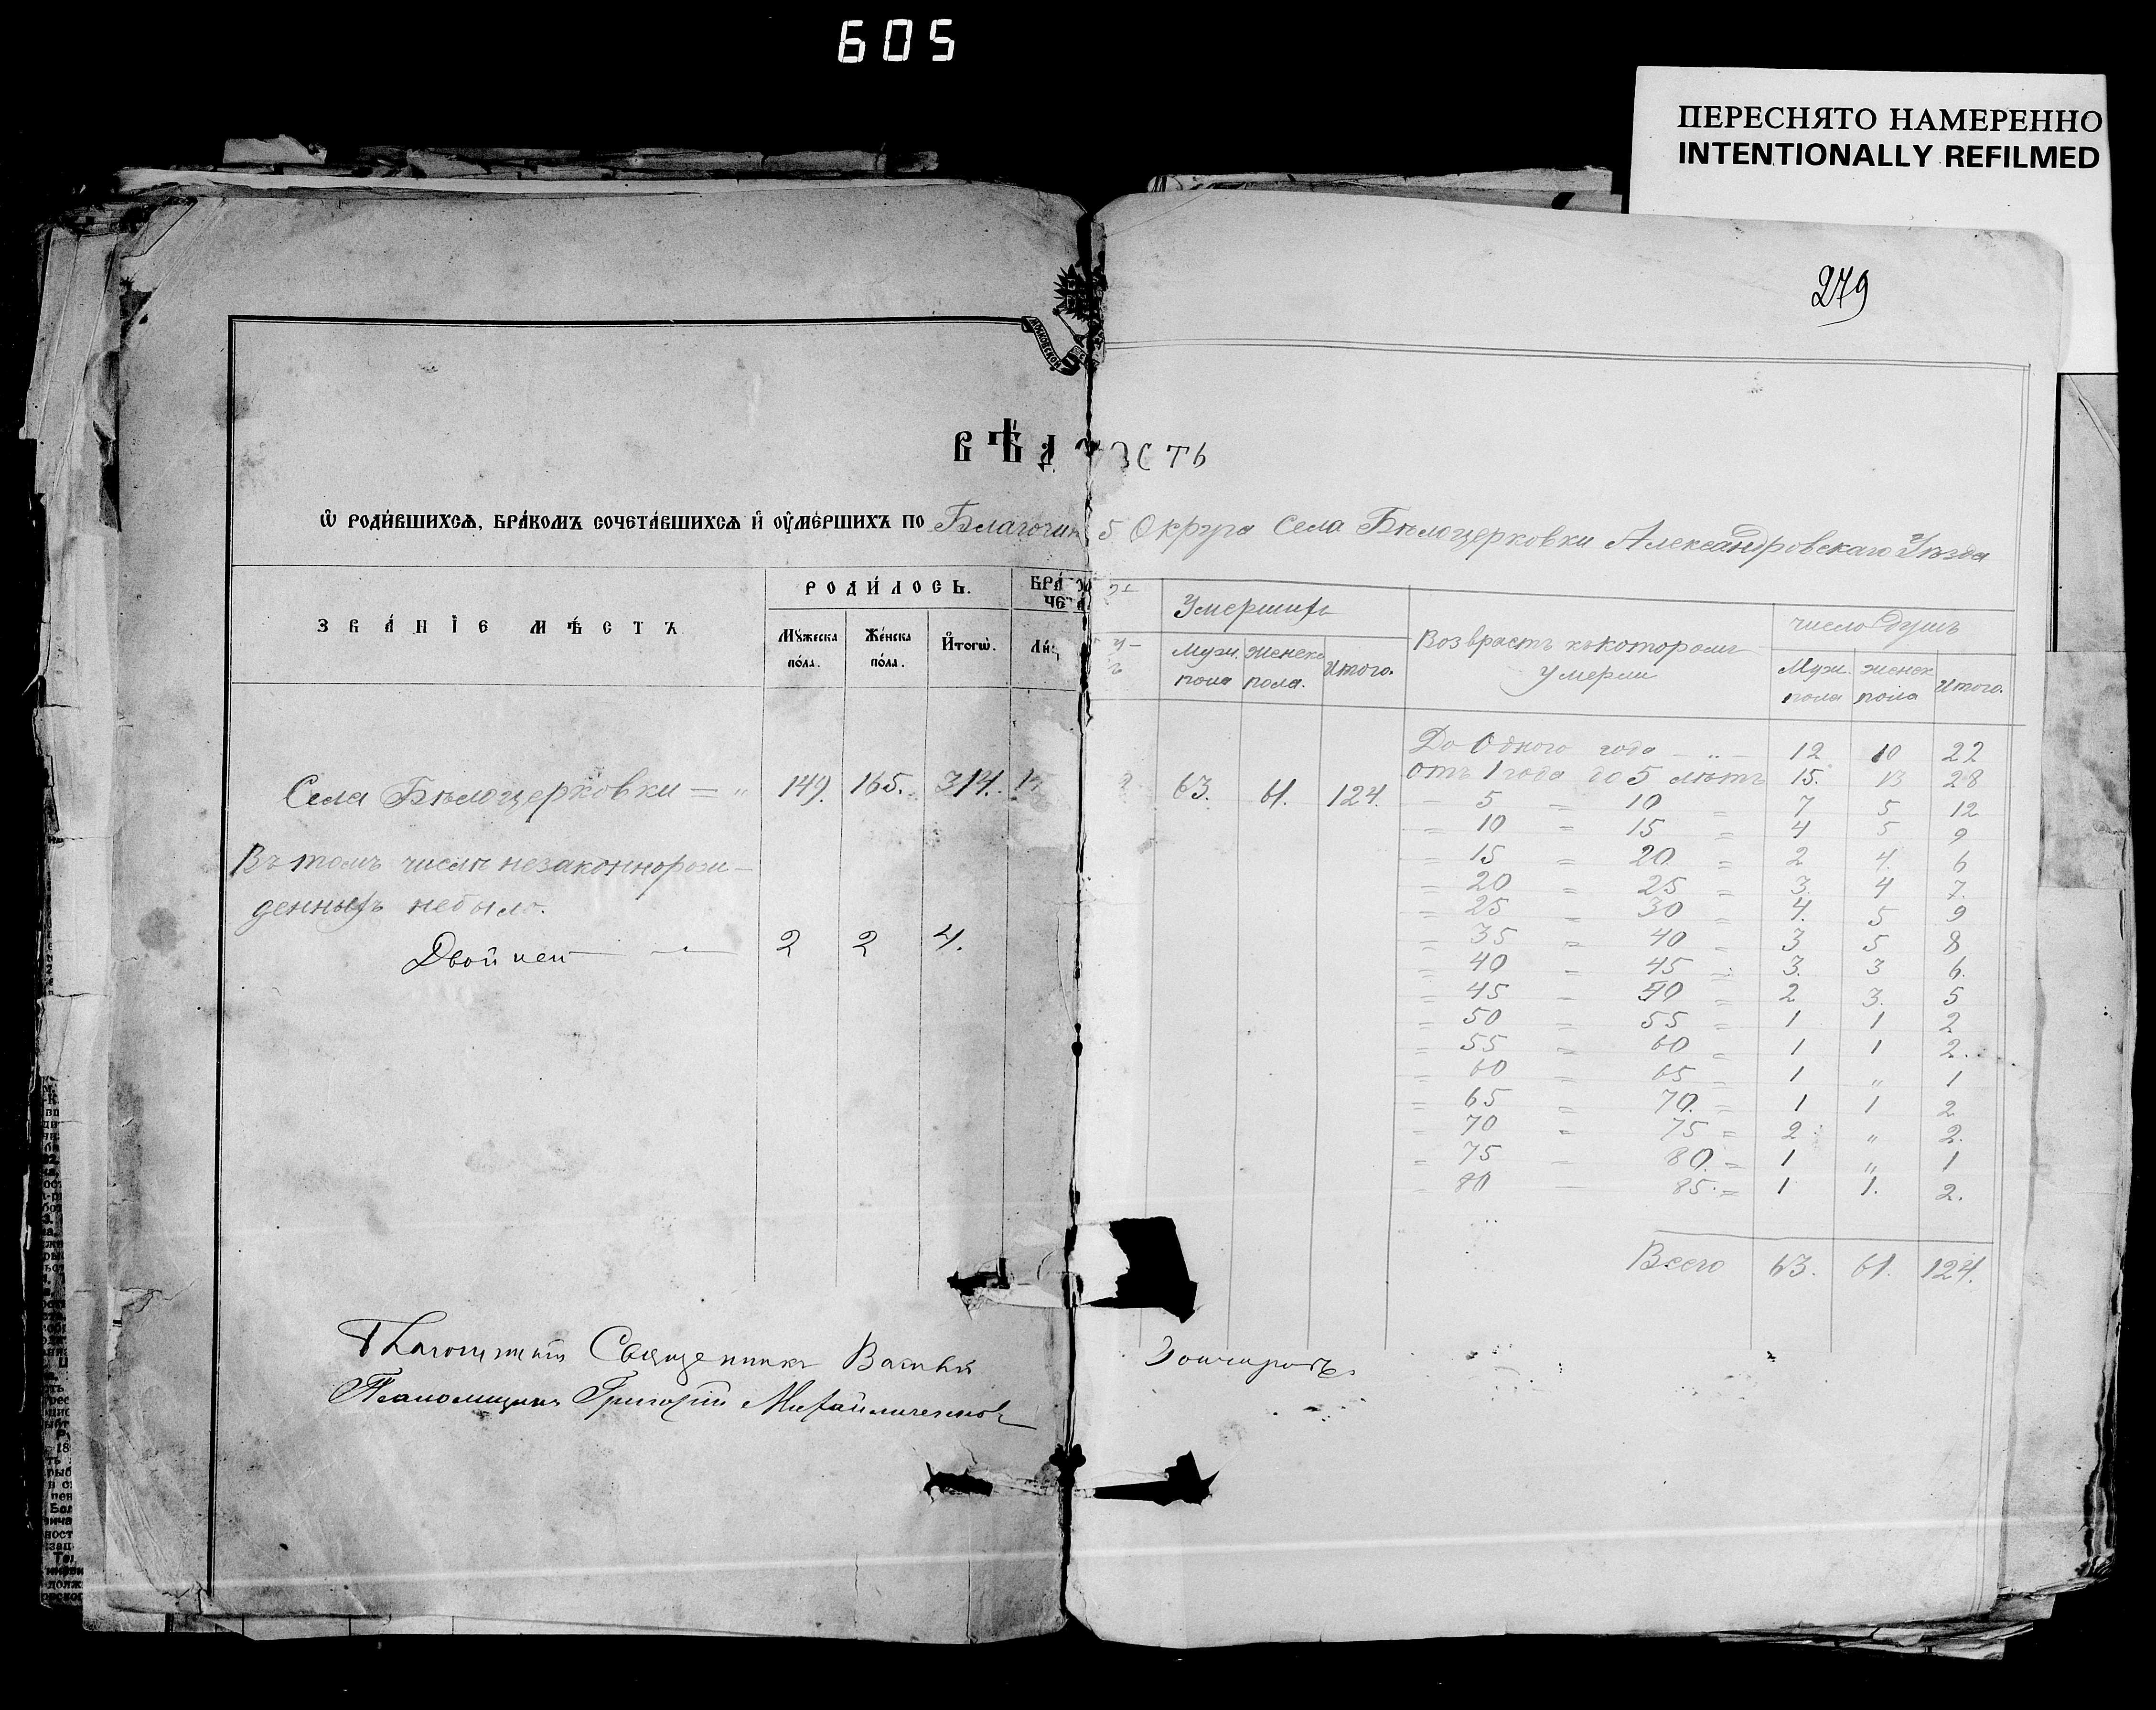 605
ПЕРЕСНЯТО НАМЕРЕННО
INTENTIONALLY REFILMED
279
ВѢД ОСТЬ
Ѿ РОДИ́ВШИХСѦ, БРА́КОМЪ СОЧЕТА́ВШИХСѦ Й ОУМЕ́РШИХЪ ПО Благочин 5 Округа Села Бѣлоцерковки Александровскаго Уѣзда
ЗВА́НІЕ МѢ́СТЪ
РОДИ́ЛОСЬ.
Мꙋжеска по́ла.
Же́нска по́ла.
И҆тогѡ̀.
БРА́
ЧЕТА́
Ли́ц
Умершихъ
Муж. пола
Женск пола.
Итого.
Возврастъ въ которомъ
умерли
число душъ
Муж. пола
женск пола
Итого.
Села Бѣлоцерковки = " 149. 165. 314.
63. 61. 124.
Въ томъ числѣ незаконнорож-
денныхъ небыло.
Двойнен — 2 2 4.
До Одного года - " - 12 10 22
отъ 1 года до 5 лѣтъ 15. 13 28
= 5 = 10 = 7 5 12
= 10 = 15 = 4 5 9
= 15 = 20 = 2 4. 6
= 20 = 25 = 3. 4 7.
= 25 = 30 = 4. 5 9
= 35 = 40 = 3 5 8
= 40 = 45 = 3. 3 6.
= 45 = 50 = 2 3. 5
= 50 = 55 = 1 1 2
= 55 = 60 = 1 1 2.
= 60 = 65 = 1 " 1
= 65 = 70. = 1 1 2
= 70 = 75 = 2 " 2.
= 75 = 80. = 1 " 1
= 80 = 85. = 1 1. 2.
Всего 63. 61. 124.
Священникъ
Псаломщикъ Григорій Михайличенковъ